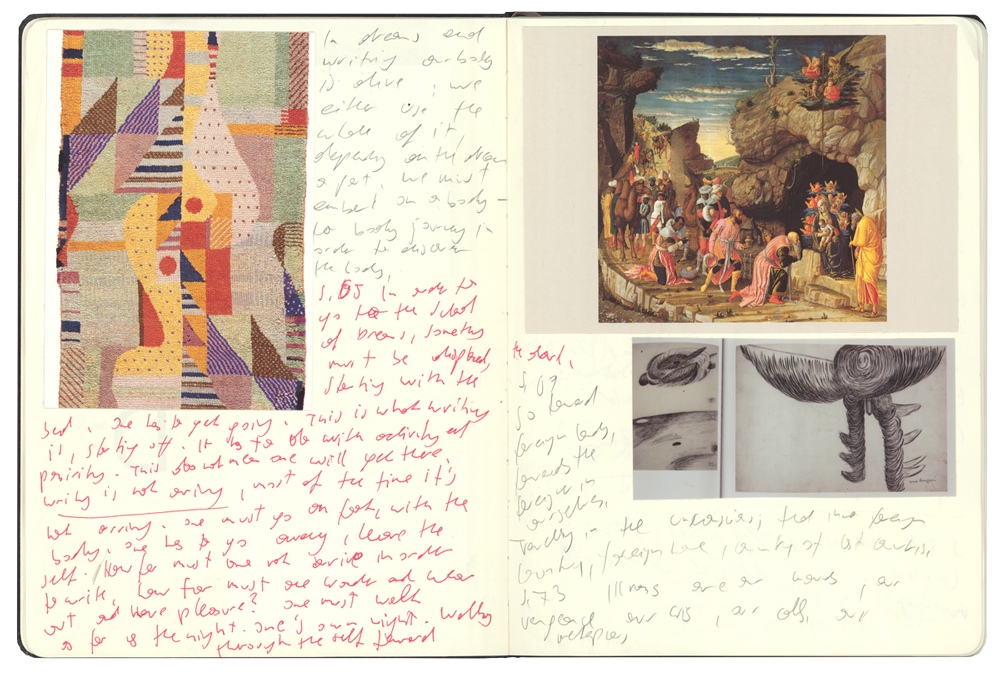 In dreams and
writing our body
is alive, we
either use the
whole of it,
depending on the dream
a part, we must
embark on a body-
to body journey in
order to discover
the body,
In order to
go to the School
of Dreams, something
must be displaced,
starting with the
bed. One has to get going. This is what writing
is, starting off. It has to do with activity and
passivity. This does not mean one will get there,
writing is not arriving, most of the time it's
not arriving. One must go on foot, with the
body. One has to go away, leave the
self. How far must one not arrive in order
to write, how far must one wander and wear
out and have pleasure? One must walk
as far as the night. One's own night. Walking
through the self toward
the dark.
S. 07
So toward
foreign body,
towards the
foreigner in
ourselves,
Travelling in the unconscious, that inner foreign
country, foreign home, country of lost countries,
S. 73 are our words, our
vengeance our cries, our calls, our